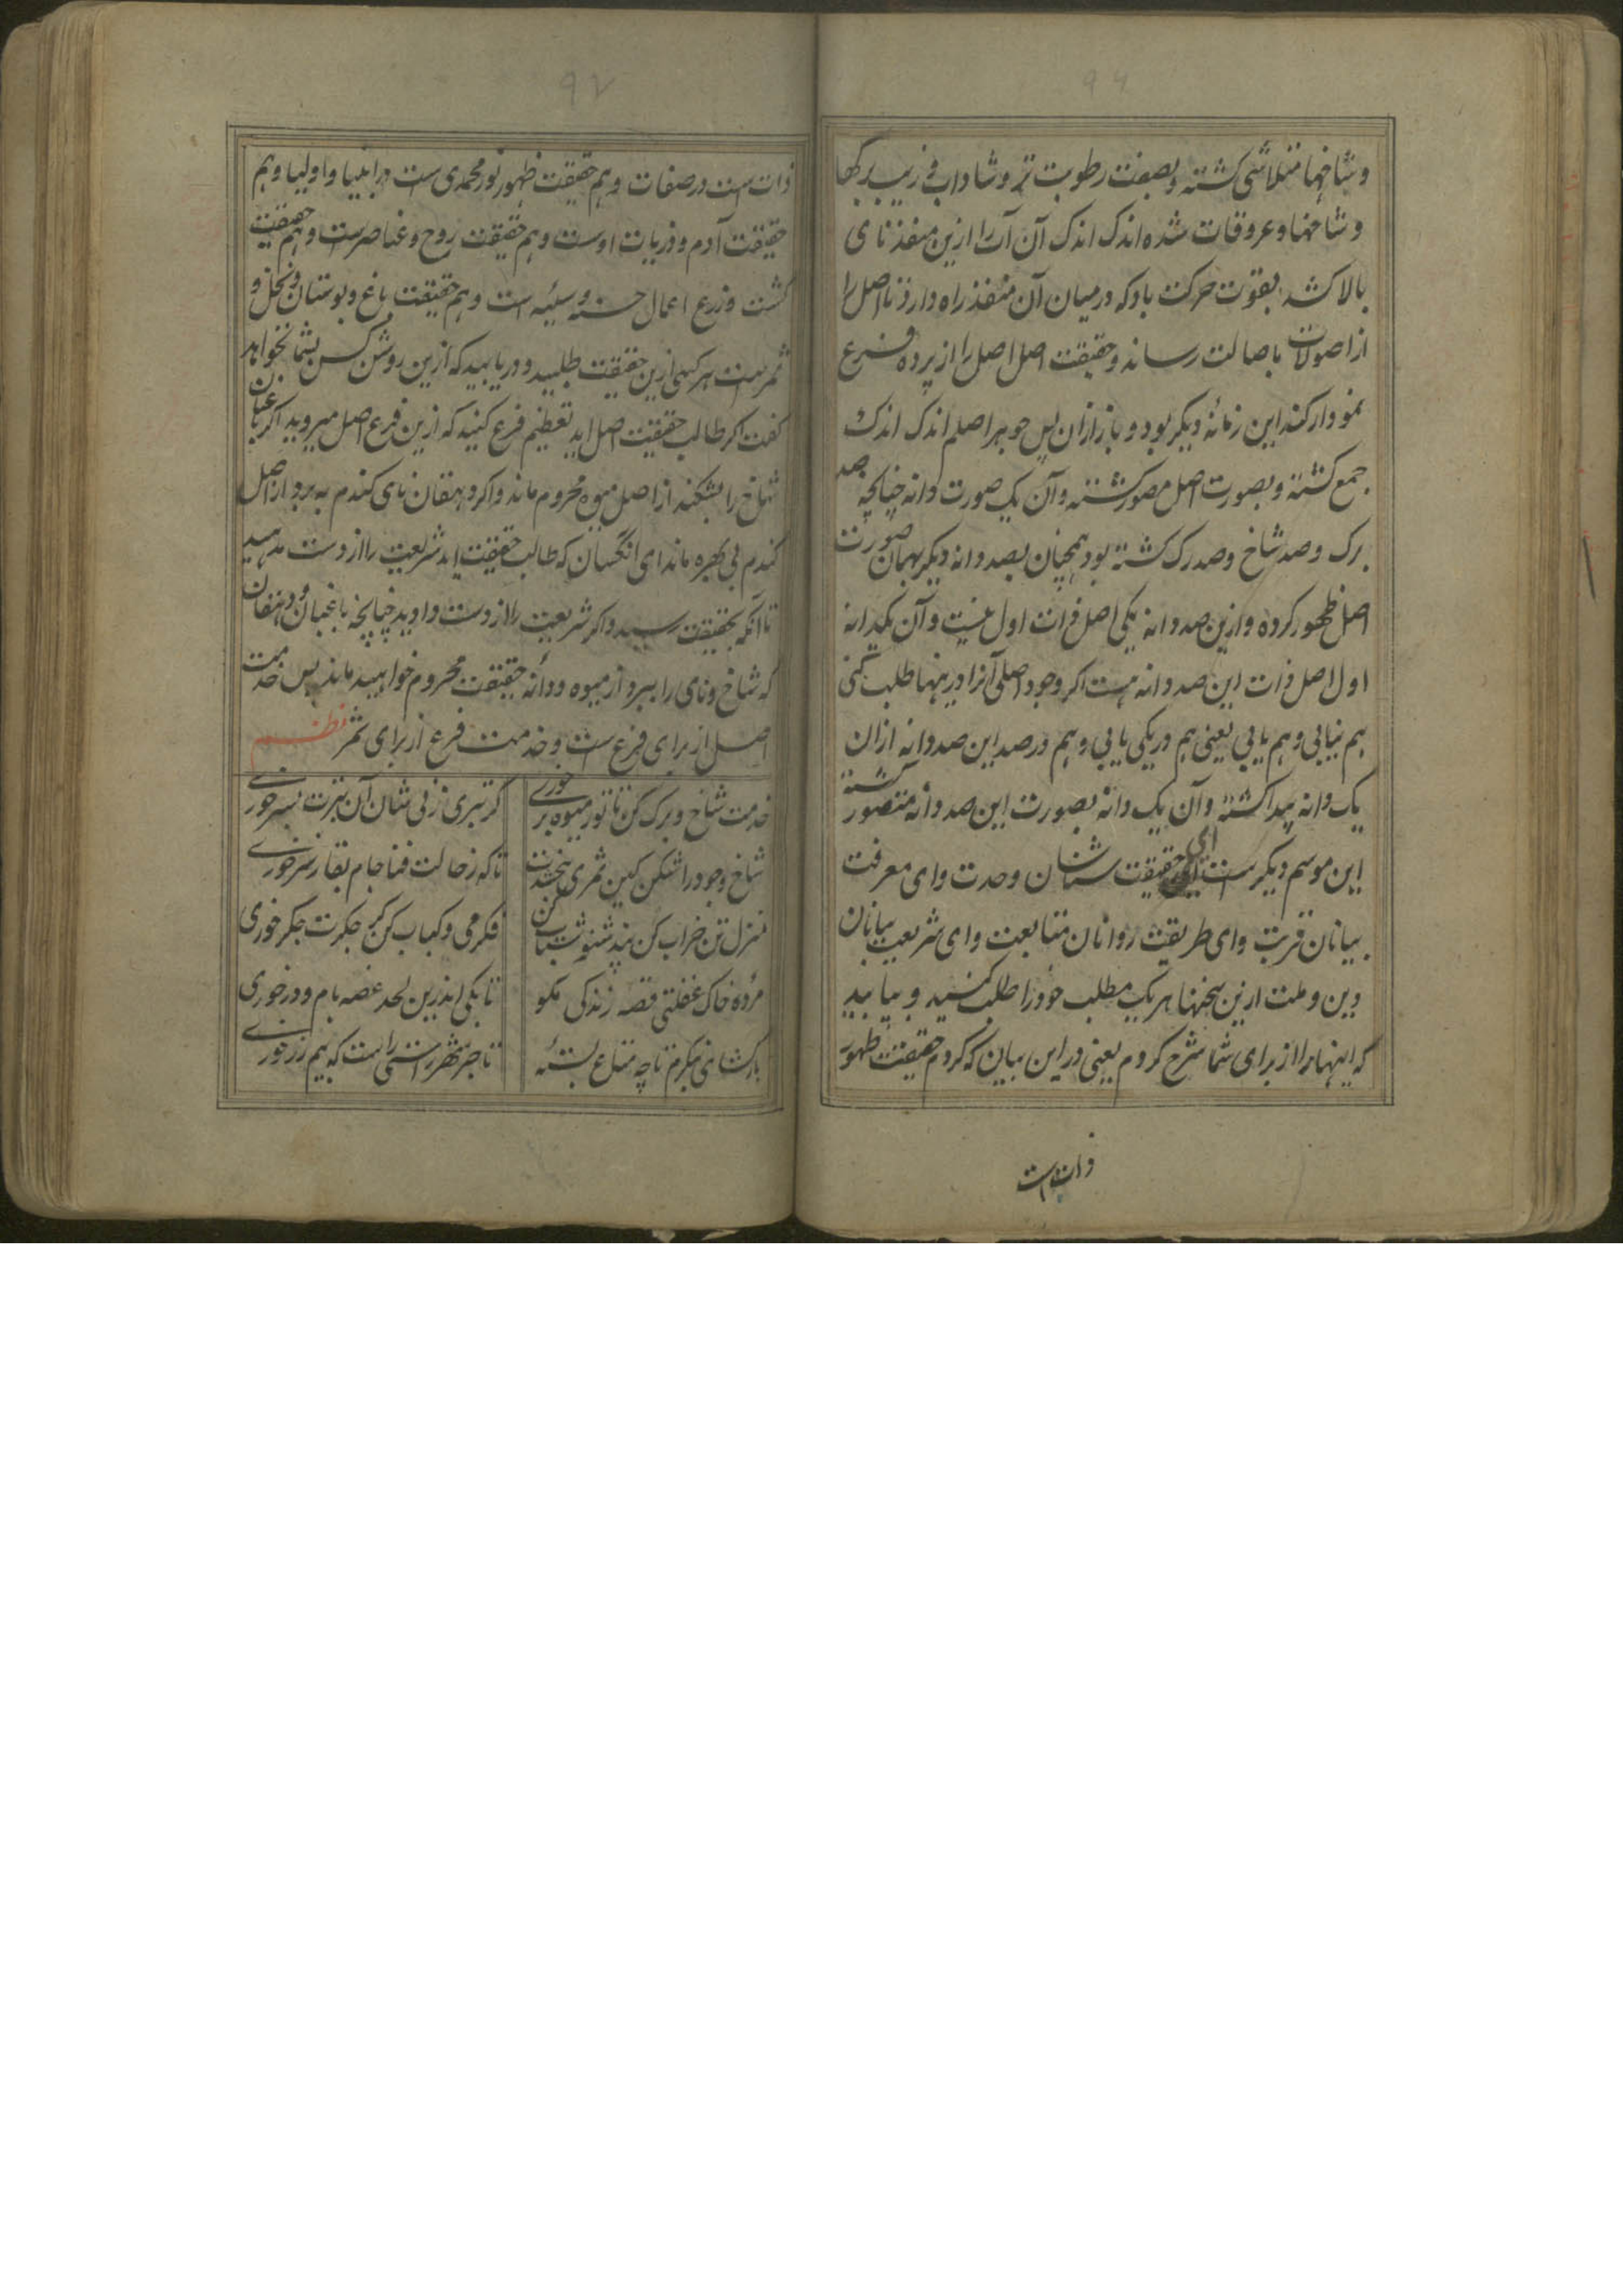 ۹۶
و شاخها متلاشی کشته و بصفت رطوبت تر و شادابی زیب برکها
و شاخها و عروقات شده اندک اندک آن آب را ازین منفذ نای
بالا کشد بقوت حرکت باد که در میان آن منفذ راه دارد تا اصل را
از اصولات باصالت رساند و حقیقت اصل اصل را از پرده فرع
نمودار کند این زمانهٔ دیکر بود و باز ازان پس جوهر اصلم اندک اندک
جمع کشته و بصورت اصل مصور کشته و آن یک صورت دانه چنانچه صد
برک و صد شاخ و صد رک کشته بود همچنان بصد دانه دیکر بهمان صورت
اصل ظهور کرده و ازین صد دانه یکی اصل ذات اول نیست و آن یکدانه
اول اصل ذات این صد دانه هست اکر وجود اصلی آنرا درینها طلب کنی
هم نیابی و هم یابی یعنی هم در یکی یابی و هم در صد این صد دانه ازان
یک دانه پیدا کشته و آن یک دانه بصورت این صد دانه متصور کشته
این موسم دیکر است ای حقیقت شناسان وحدت و ای معرفت
بیانان قربت و ای طریقت روانان متابعت و ای شریعت بیانان
دین و ملت ازین سخنها هر یک مطلب خود را طلب کنید و بیابید
که اینها را از برای شما شرح کردم یعنی در این بیان که کردم حقیقت ظهور
ذات است
۹۷
ذات است در صفات و هم حقیقت ظهور نور محمدی است در انبیا و اولیا و هم
حقیقت آدم و ذریات اوست و هم حقیقت روح و عناصر است و هم حقیقت
کشت و زرع اعمال حسنه و سیئه است و هم حقیقت باغ و بوستان و نخل و
ثمر است هر کسی ازین حقیقت طلبید و دریابید که ازین روشن کس بشما نخواهد
کفت اکر طالب حقیقت اصل اید تعظیم فرع کنید که ازین فرع اصل میروید اکر باغبان
شاخ را بشکند از اصل میوه محروم ماند و اکر دهقان نای کندم به برد از اصل
کندم بی بهره ماند ای انکسان که طالب حقیقت اید شریعت را از دست مدهید
تا آنکه بحقیقت رسید و اکر شریعت را از دست دادید چنانچه باغبان و دهقان
که شاخ و نای را ببرد از میوه و دانه حقیقت محروم خواهید ماند پس خدمت
اصل از برای فرع است و خدمت فرع از برای ثمر نظم
خدمت شاخ و برک کن تا تو ز میوه بر خوری کر تبری ز بی مثان آن تبرت بسر خوری
شاخ وجود را شکن کین ثمری نبخشدت تا که ز حالت فنا جام بقا ز سر خوری
منزل تن خراب کن پند شنو شتاب کن فکر می و کباب کن کز جکرت جکر خوری
مرده خاک غفلتی قصه زندکی مکو تا بکی اندرین لحد غصه بام و در خوری
بار کشای بنکرم تا چه متاع بستهٔ تاجر شهر راستی راست که بیم زر خوری